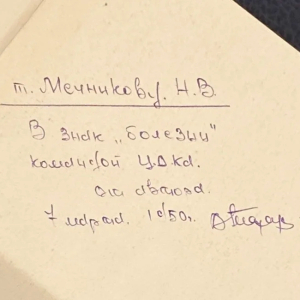 т. Мечникову. Н.В.
В знак „болезни"
командой ЦДКа.
от автора.
7 1950г.